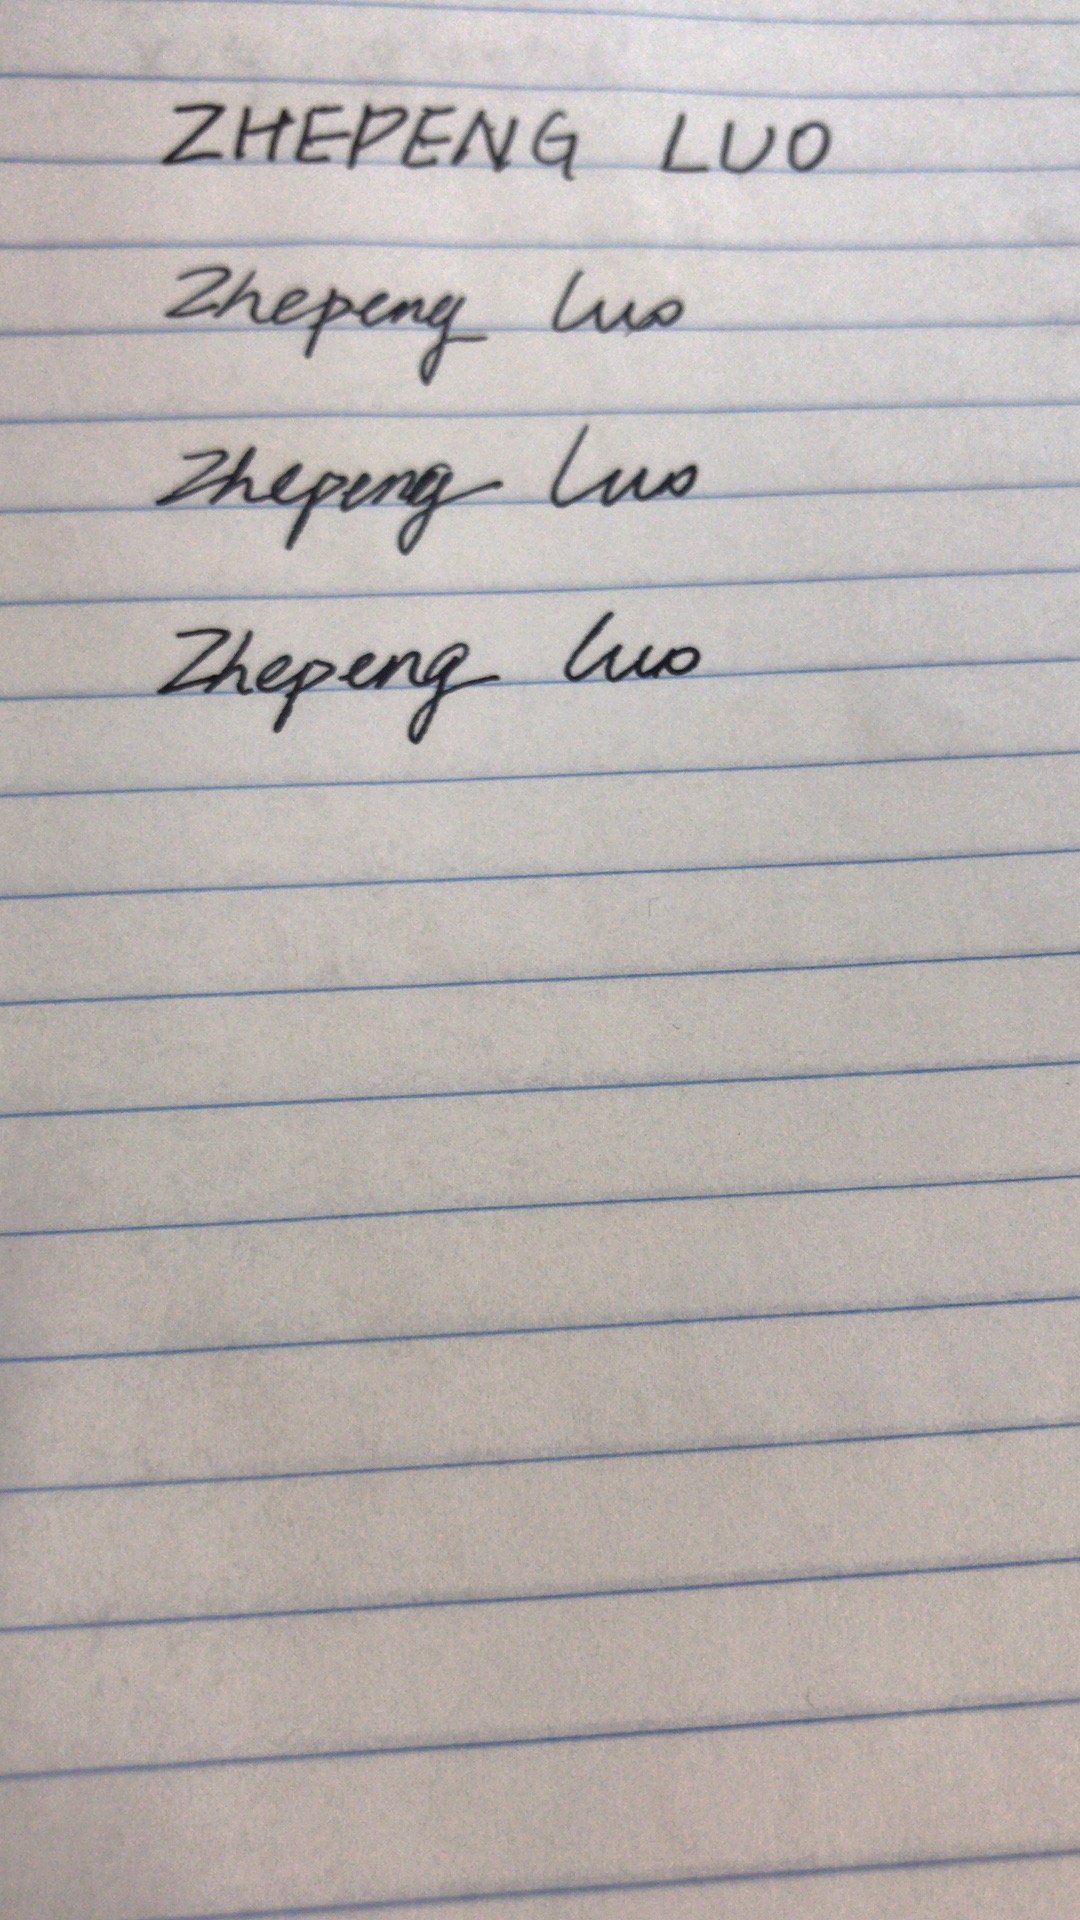 ZHEPENG LUO
Zhepeng Luo
Zhepeng Luo
Zhepeng Luo